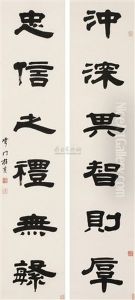 沖深其智則厚
忠信之禮無繇